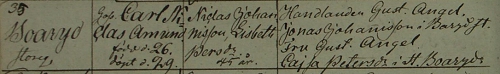 35
Boaryd
Carl Ni
clas Amund
född d. 26.
döpt d. 29.
Niclas Johan
nisson, Lisbeth
Persdr
45 år.
Handlanden Gust. Angel.
Jonas Johannisson i Boaryd
Fru Gust. Angel
Cajsa Petersdr i St. Boaryd